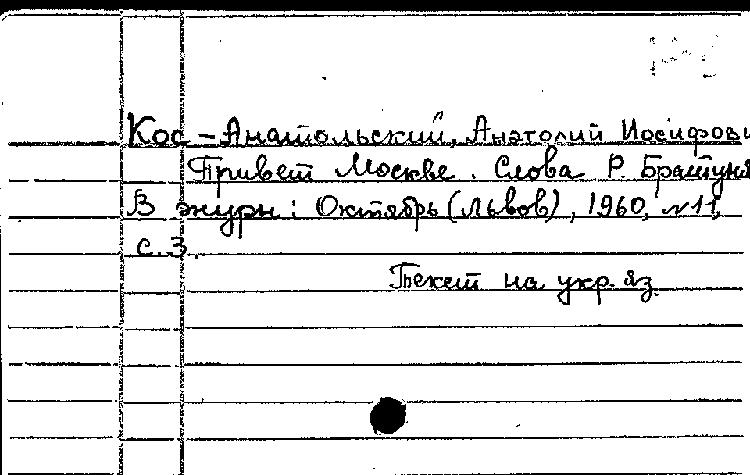 Кос-Анатольский, Анатолий Иосифови
Привет Москве. Слова Р. Братуня
В журн: Октябрь (Львов), 1960, №11,
с.3.
Текст на укр. яз.